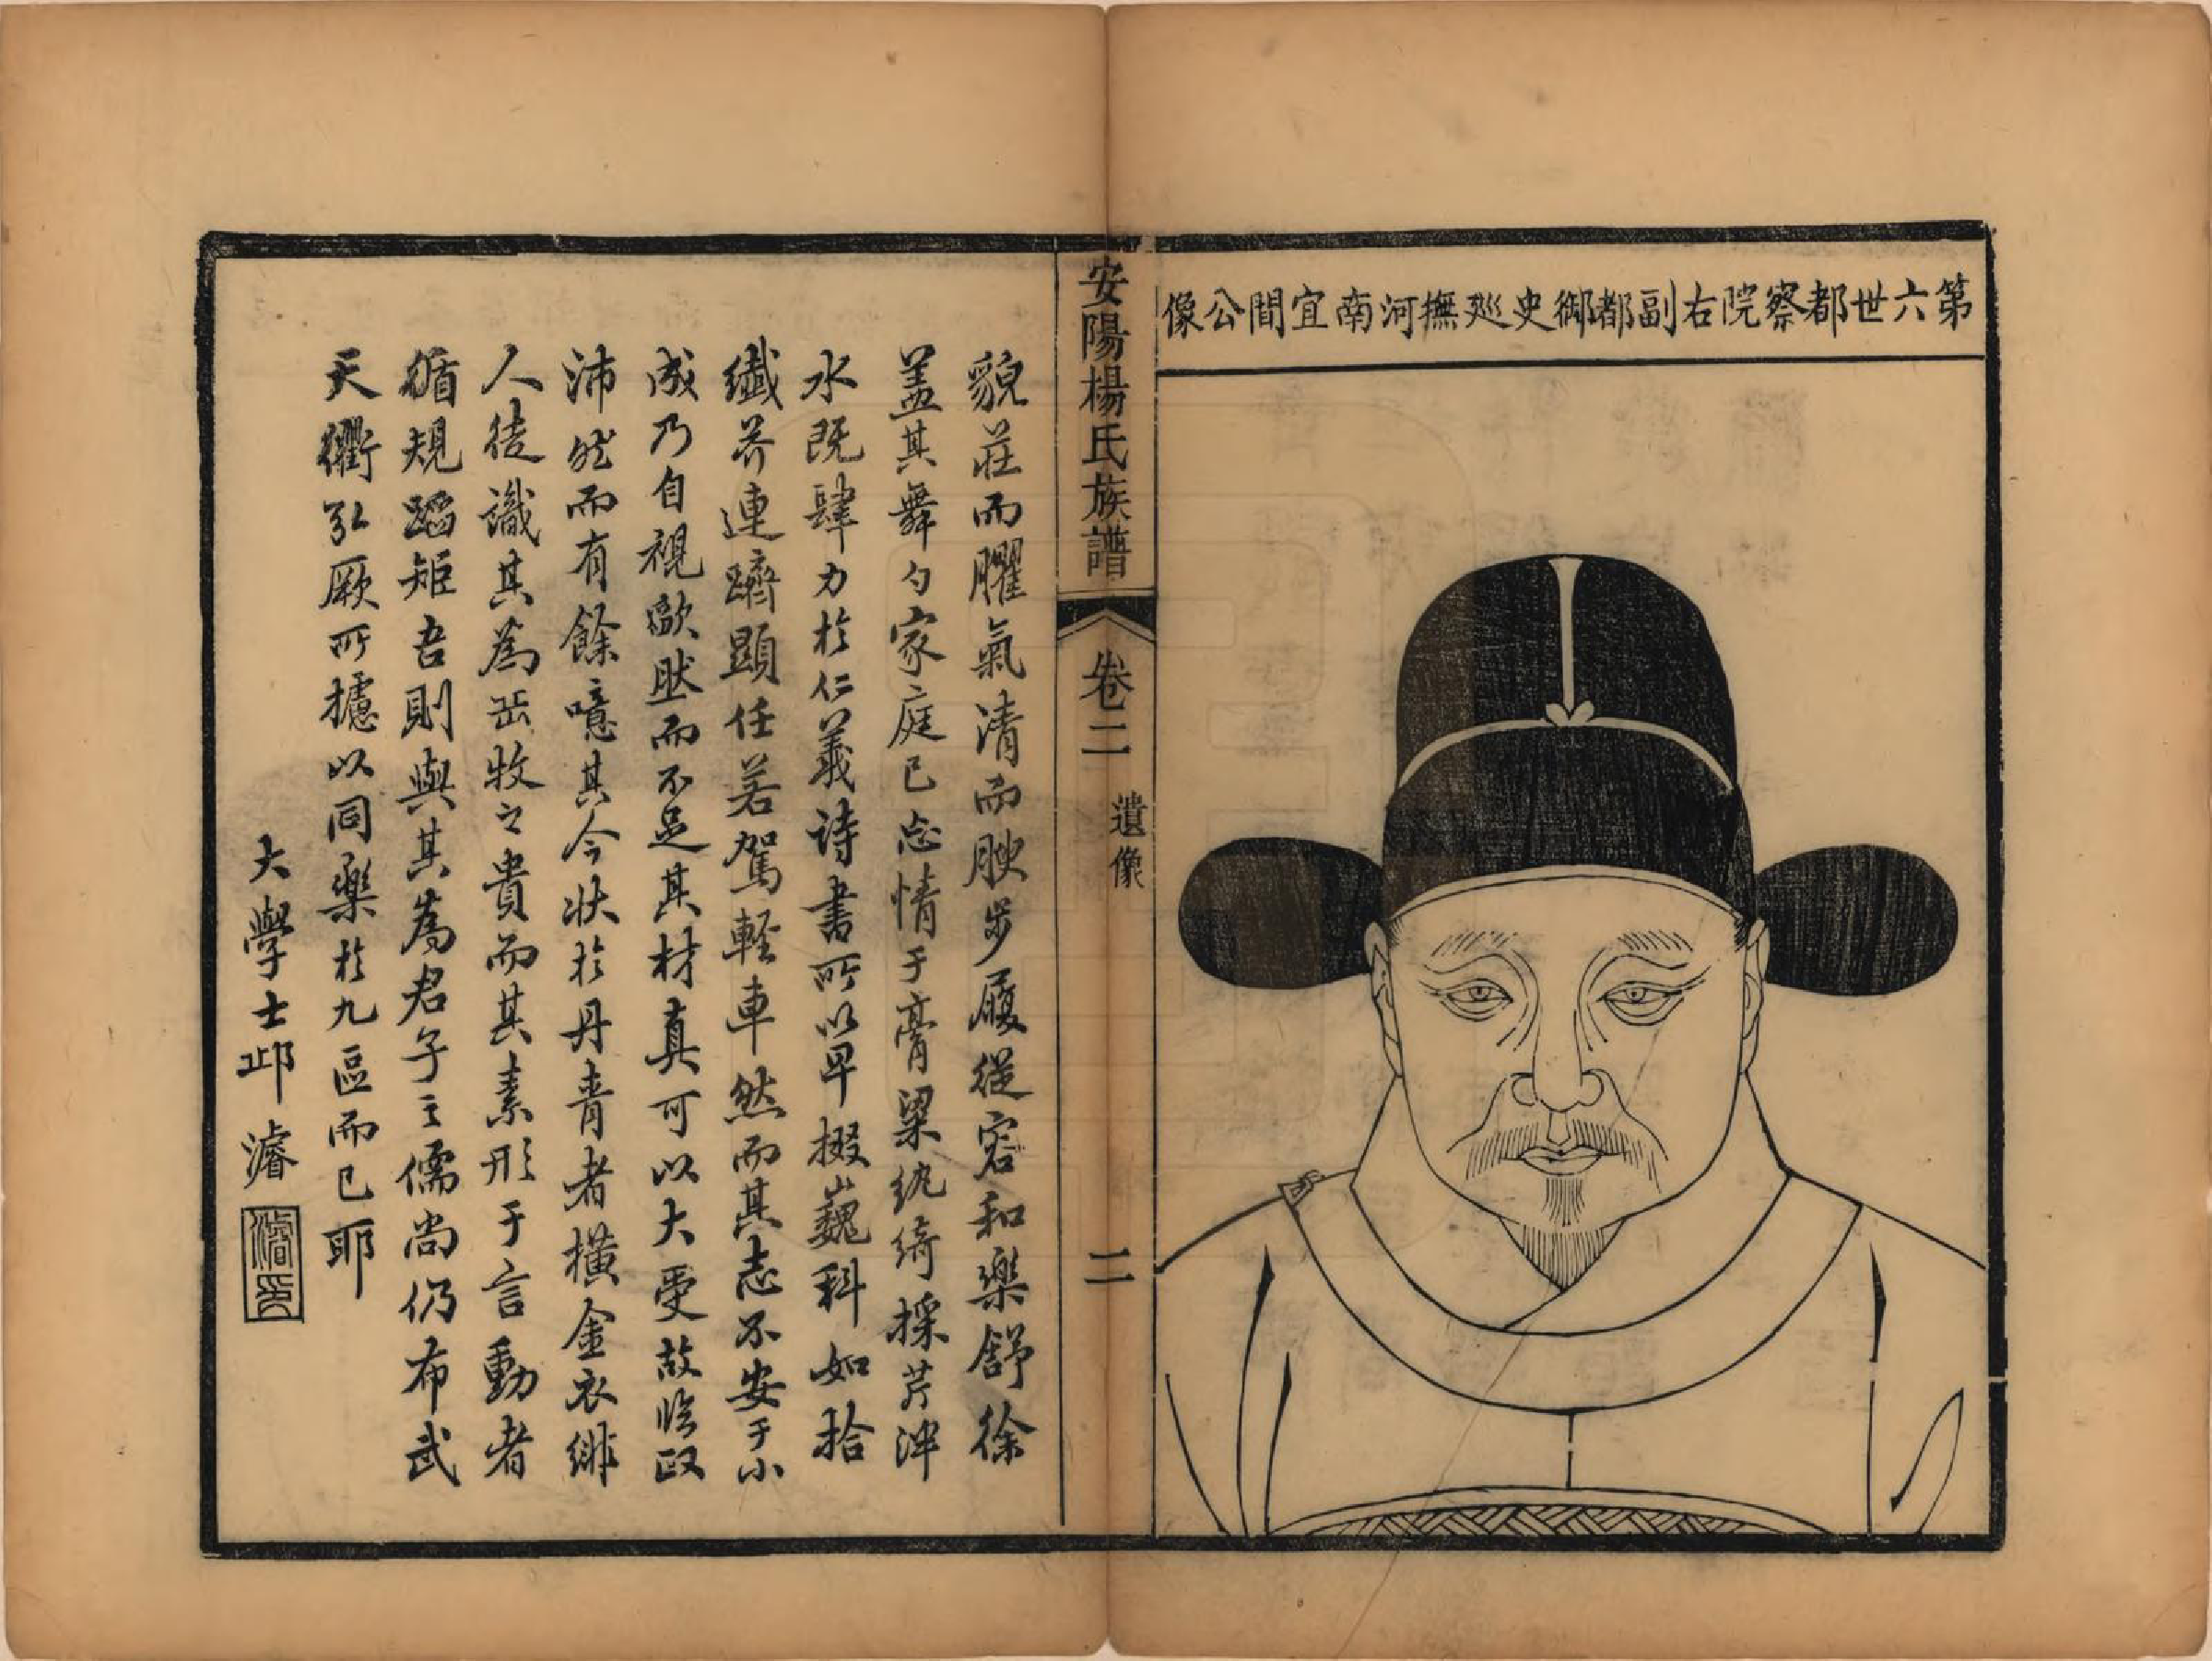 第六世都察院右副都御史廵撫河南宜間公像
安陽楊氏族譜
卷二
遺像
二
貌莊而臞氣清而腴步履從容和樂舒徐
盖其舞勺家庭已忘情于膏粱紈綺採芹泮
水既肆力於仁義詩書所以早掇巍科如拾
纖芥連躋顯任若駕輕車然而其志不安于小
成乃自視歉然而不足其材真可以大受故臨政
沛然而有餘噫其今狀於丹青者橫金衣緋
人徒識其為岳牧之貴而其素形于言動者
循規蹈矩吾則與其為君子之儒尚仍布武
天衢弘厥所據以同樂於九區而已耶
大學士邱濬
濬印